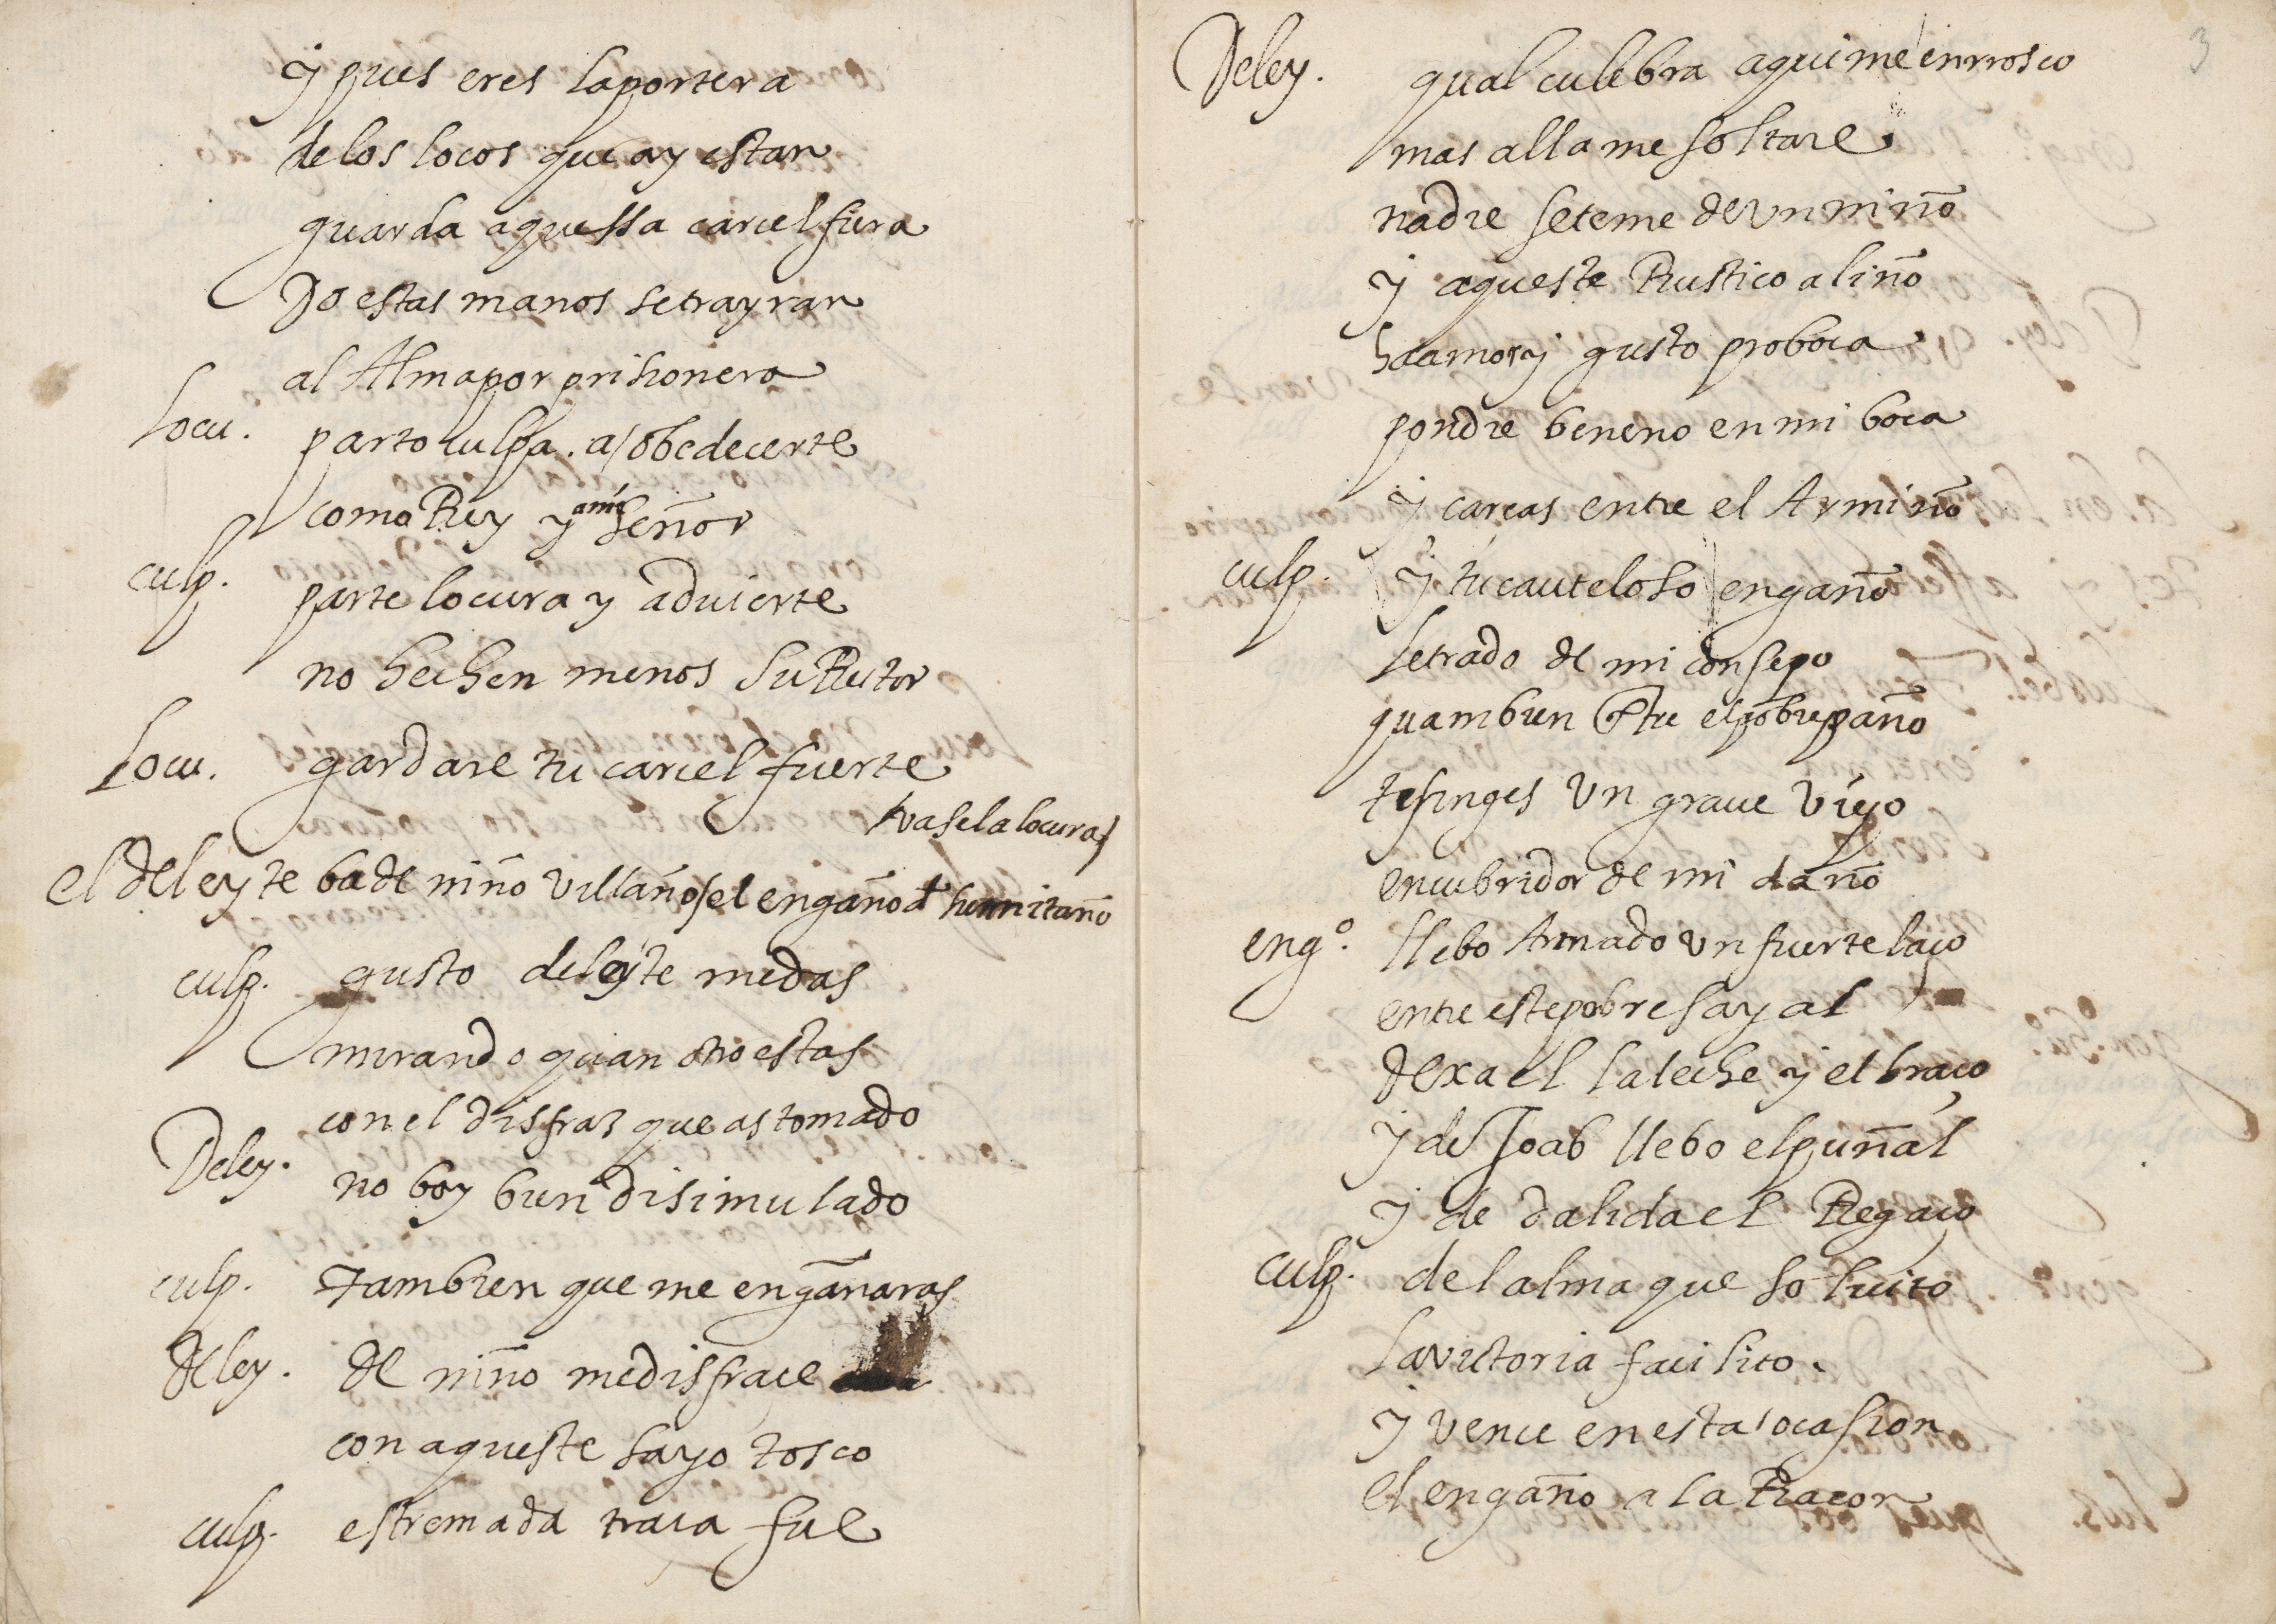 y pues eres la portera
de los locos que ay estan
guarda aquessa carcel fiera
Do estas manos se trayran
al Alma por prisionera
Locu. parto culpa. a obedecerte
como Rey y ami Señor
culp. parte locura y aduierte
no hechen menos su Retor
Locu. gardare tu carcel fuerte
vase la locura
el deleyte ba de niño villano / el engaño de hermitaño
culp. gusto deleyte me das
mirando quan otro estas
con el disfras que as tomado
Deley. no boy bien disimulado
culp. tambien que me engañaras
deley. de niño me disfrace
con aqueste sayo tosco
culp. estremada traca fue
3
Deley. qual culebra aqui me enrrosco
mas alla me soltare
nadie se teme de vn niño
y aqueste Rustico aliño
ha amor y gusto proboca
pondre beneno en mi boca
y carcas entre el Armiño
culp. y tu cauteloso engaño
letrado de mi consejo
quam bien entre el pobre paño
te finges vn graue viejo
encubridor de mi daño
engº. llebo Armado vn fuerte laço
entre este pobre sayal
de xael la leche y el braço
y de Joab llebo el puñal
y de dalida el Regaço
culp. del alma que solicito
la victoria facilito.
y vence en esta ocasion
el engaño a la Racon